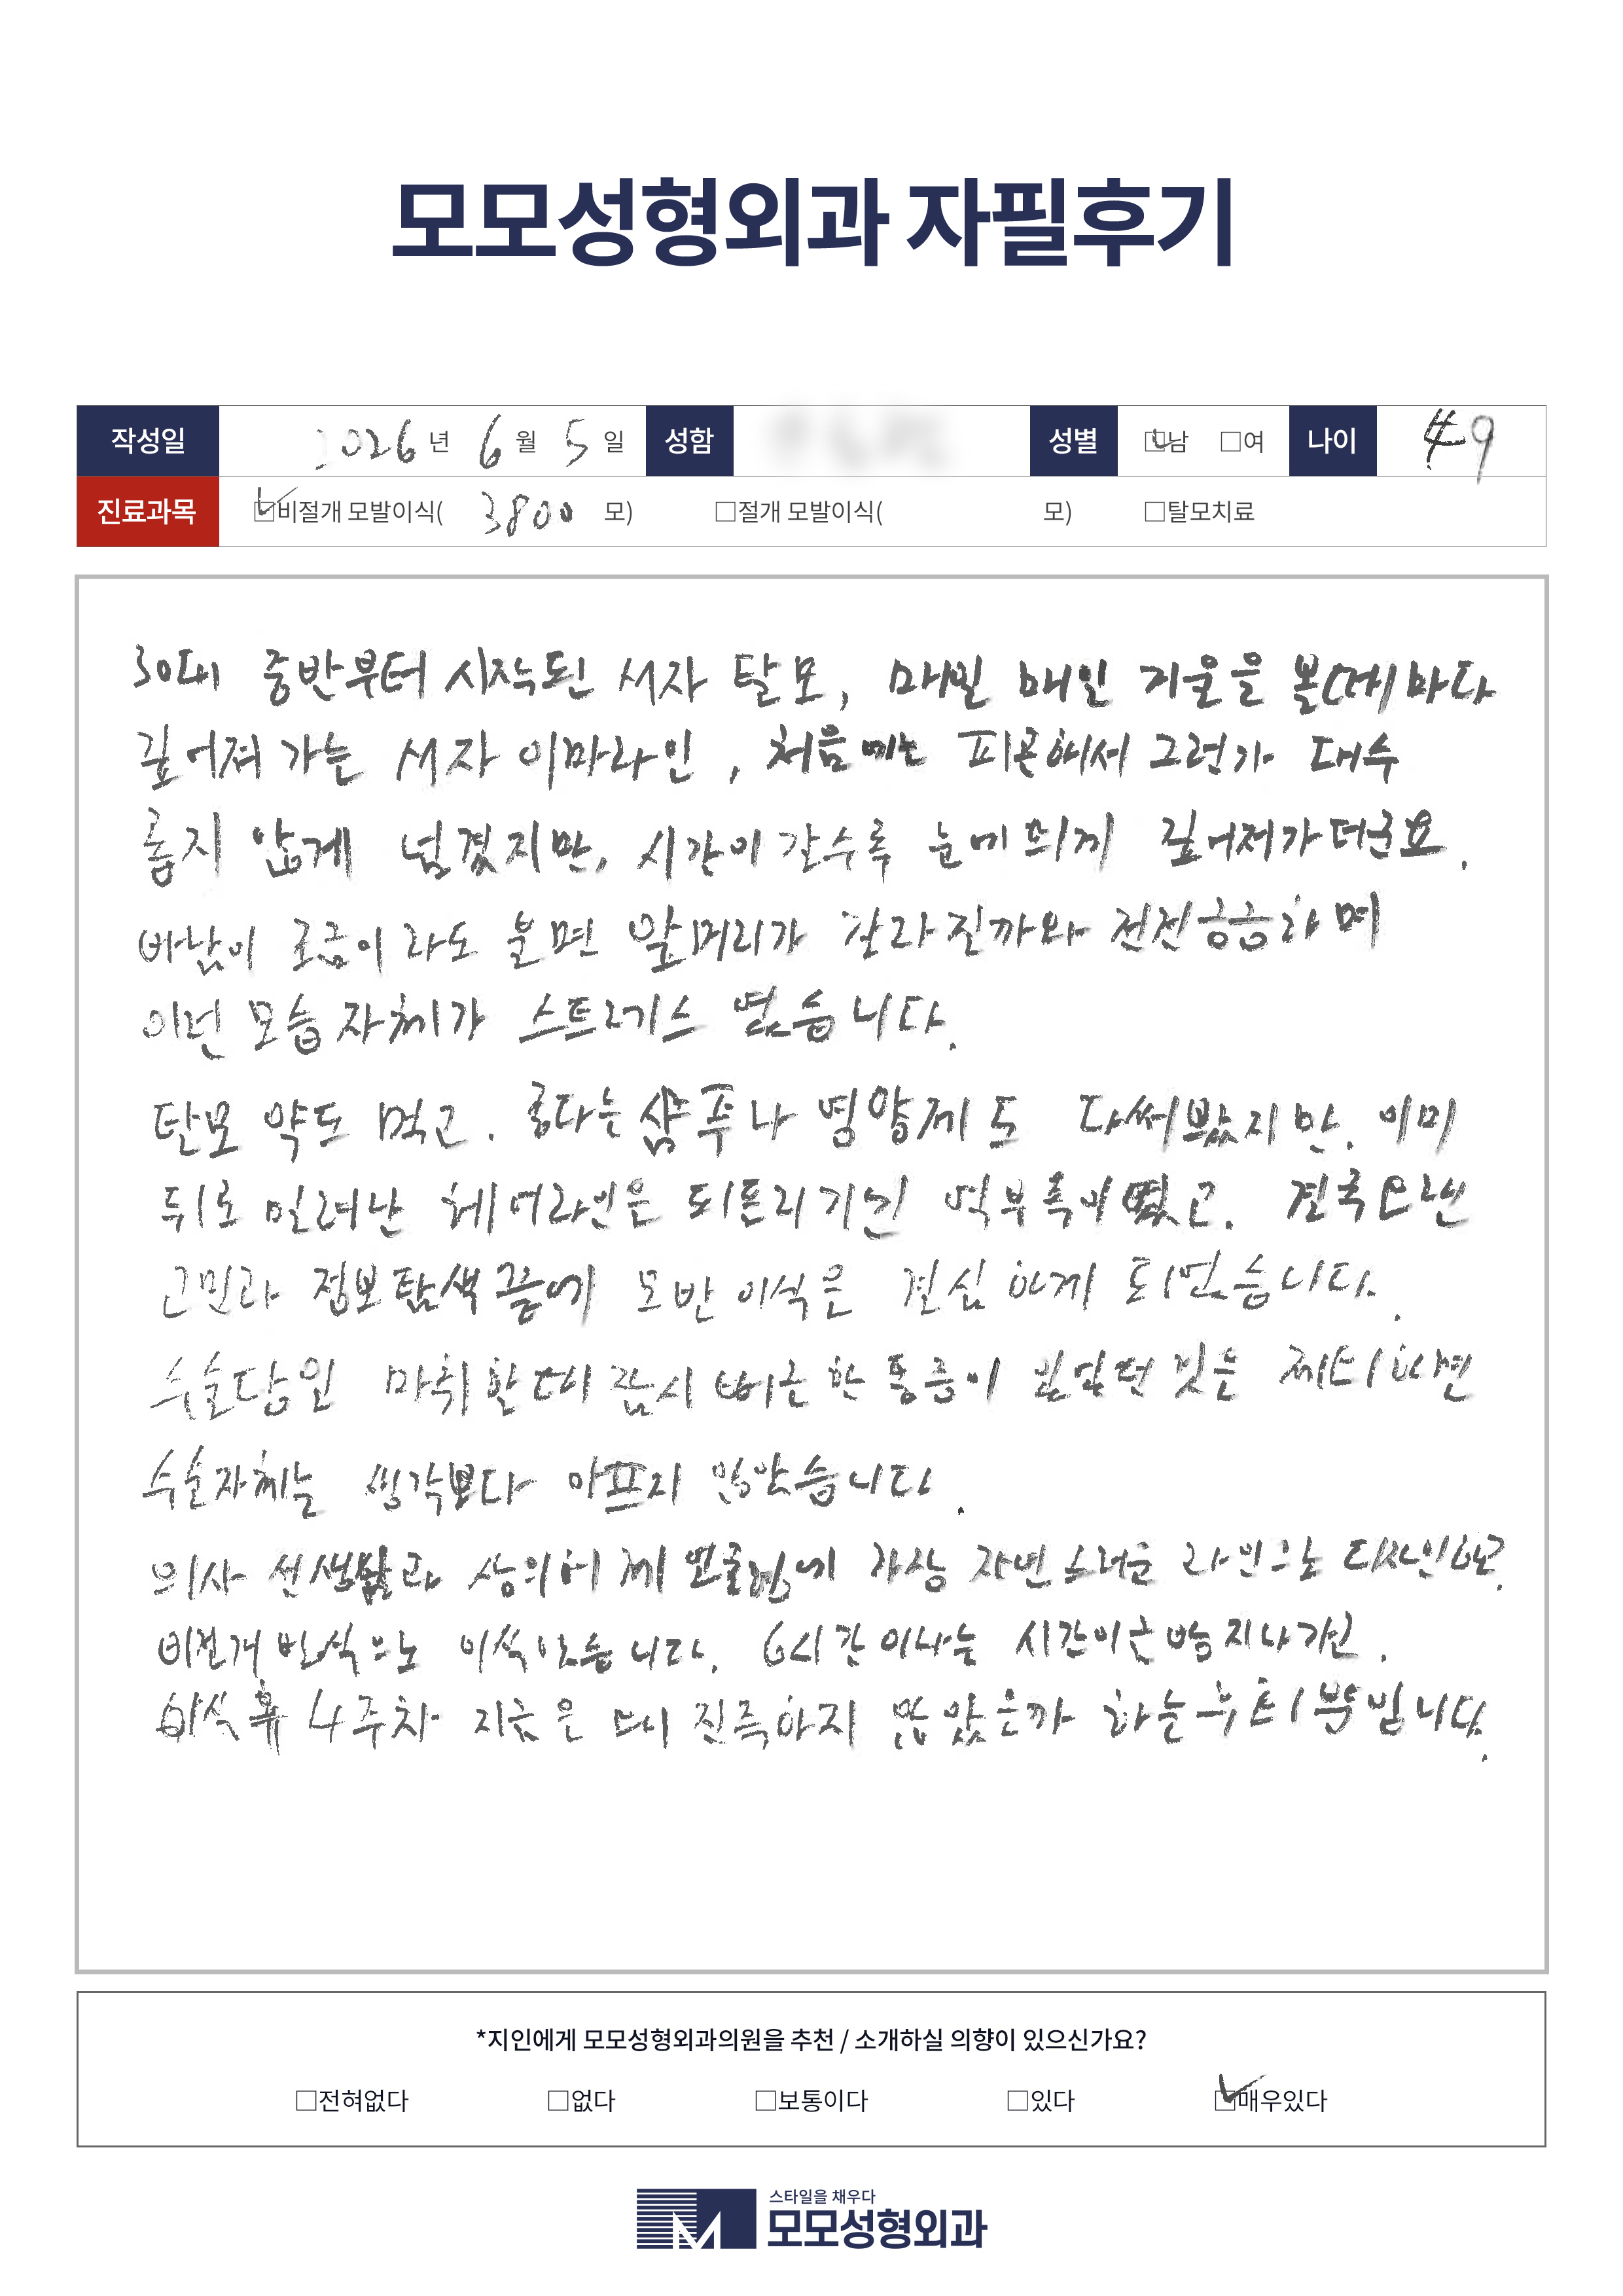 모모성형외과 자필후기
작성일 2026년 6월 5일 성함 성별 □남 □여 나이 49
진료과목 □비절개 모발이식( 3800 모) □절개 모발이식( 모) □탈모치료
30대 중반부터 시작된 M자 탈모, 매일 매일 거울을 볼때마다
깊어져 가는 M자 이마라인, 처음에는 피곤해서 그런가 대수
롭지 않게 넘겼지만, 시간이 갈수록 눈에 띄게 깊어져가더군요.
바람이 조금이라도 불면 앞머리가 갈라질까와 전전긍긍하며
이런 모습 자체가 스트레스 였습니다.
탈모 약도 먹고. 좋다는 샴푸나 영양제도 다써봤지만. 이미
뒤로 밀려난 헤어라인은 되돌리기엔 역부족이였고. 결국 오랜
고민과 정보탐색 끝에 모발이식을 결심하게 되었습니다.
수술당일 마취할때 잠시 뻐근한 통증이 있었던 것을 제외하면
수술자체는 생각보다 아프지 않았습니다.
의사 선생님과 상의하에 제 얼굴형에 가장 자연스러운 라인으로 디자인하고.
비절개 방식으로 이식했습니다. 6시간 이나는 시간이 금방 지나가고.
이식후 4주차 지금은 왜 진즉하지 않았을까 하는 후회뿐입니다.
*지인에게 모모성형외과의원을 추천 / 소개하실 의향이 있으신가요?
□전혀없다 □없다 □보통이다 □있다 □매우있다
스타일을 채우다
모모성형외과